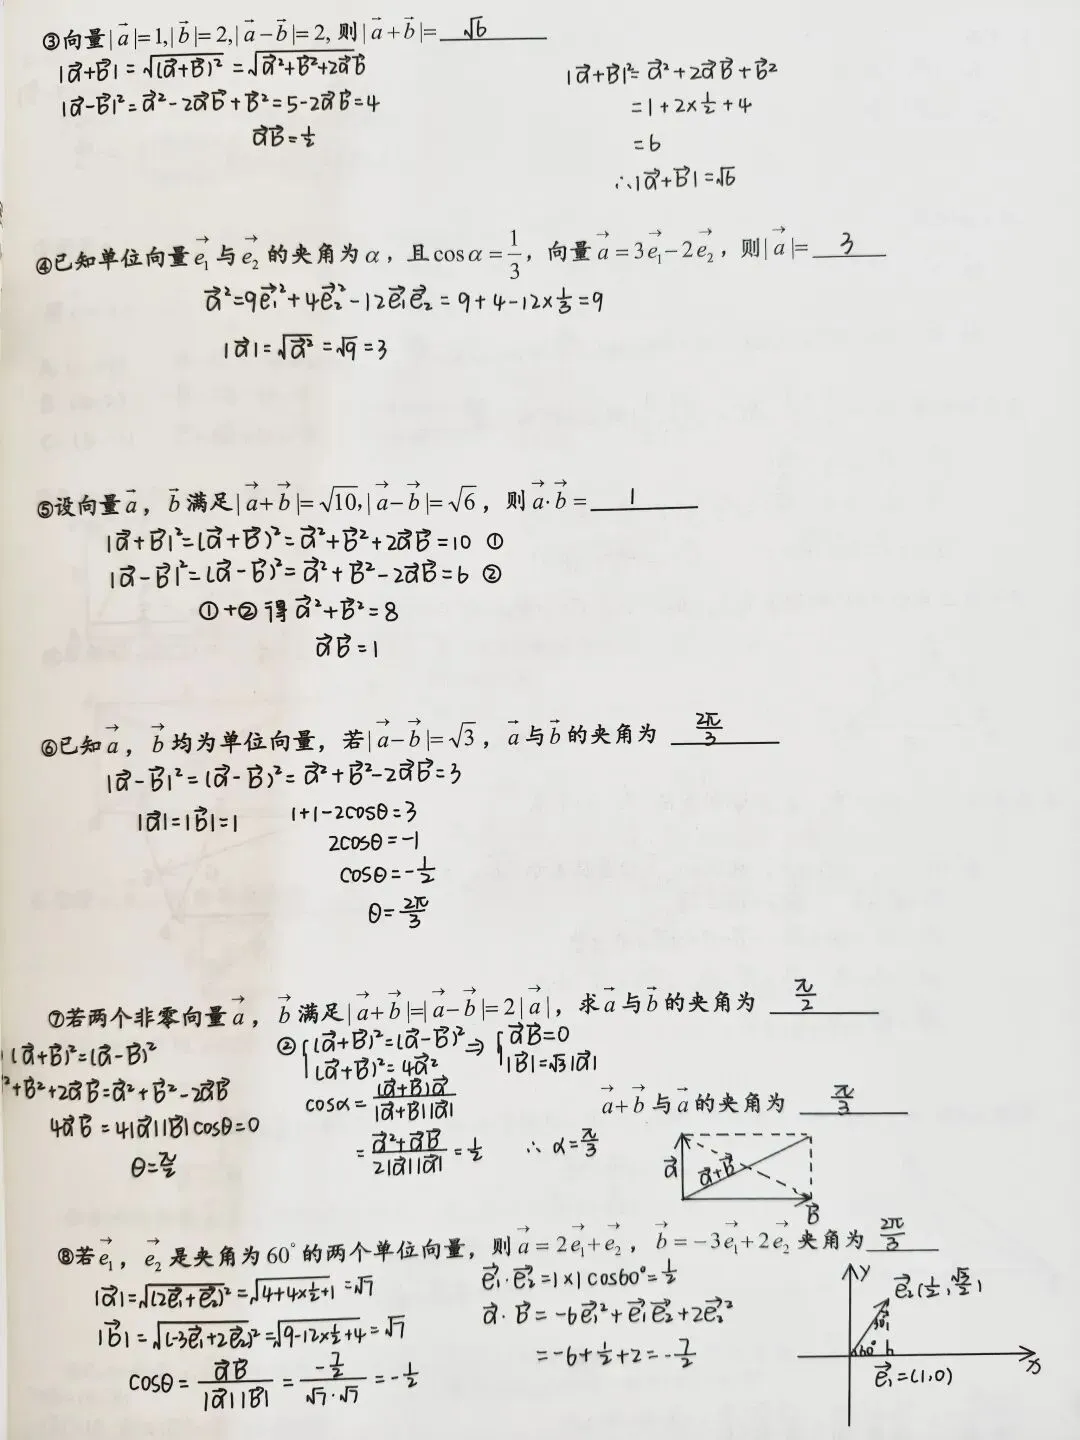 ③向量|a⃗|=1,|b⃗|=2,|a⃗-b⃗|=2,则|a⃗+b⃗|=√6
|a⃗+b⃗|=√(a⃗+b⃗)²=√a⃗²+b⃗²+2a⃗b⃗
|a⃗-b⃗|²=a⃗²-2a⃗b⃗+b⃗²=5-2a⃗b⃗=4
a⃗b⃗=½
|a⃗+b⃗|²=a⃗²+2a⃗b⃗+b⃗²
=1+2×½+4
=6
∴|a⃗+b⃗|=√6
④已知单位向量e₁⃗与e₂⃗的夹角为α,且cosα=1/3,向量a⃗=3e₁⃗-2e₂⃗,则|a⃗|=3
a⃗²=9e₁⃗²+4e₂⃗²-12e₁⃗e₂⃗=9+4-12×1/3=9
|a⃗|=√a⃗²=√9=3
⑤设向量a⃗,b⃗满足|a⃗+b⃗|=√10,|a⃗-b⃗|=√6,则a⃗·b⃗=1
|a⃗+b⃗|²=(a⃗+b⃗)²=a⃗²+b⃗²+2a⃗b⃗=10 ①
|a⃗-b⃗|²=(a⃗-b⃗)²=a⃗²+b⃗²-2a⃗b⃗=6 ②
①+②得a⃗²+b⃗²=8
a⃗b⃗=1
⑥已知a⃗,b⃗均为单位向量,若|a⃗-b⃗|=√3,a⃗与b⃗的夹角为2π/3
|a⃗-b⃗|²=(a⃗-b⃗)²=a⃗²+b⃗²-2a⃗b⃗=3
|a⃗|=|b⃗|=1
1+1-2cosθ=3
2cosθ=-1
cosθ=-½
θ=2π/3
⑦若两个非零向量a⃗,b⃗满足|a⃗+b⃗|=|a⃗-b⃗|=2|a⃗|,求a⃗与b⃗的夹角为π/2
(a⃗+b⃗)²=(a⃗-b⃗)²
²+b⃗²+2a⃗b⃗=a⃗²+b⃗²-2a⃗b⃗
4a⃗b⃗=4|a⃗||b⃗|cosθ=0
θ=π/2
②{(a⃗+b⃗)²=(a⃗-b⃗)² ⇒ {a⃗b⃗=0
(a⃗+b⃗)²=4a⃗² |b⃗|=√3|a⃗|
cosα=(a⃗+b⃗)a⃗/|a⃗+b⃗||a⃗|
=a⃗²+a⃗b⃗/2|a⃗||a⃗|=½ ∴α=π/3
a⃗+b⃗与a⃗的夹角为π/3
a⃗
a⃗+b⃗
b⃗
⑧若e₁⃗,e₂⃗是夹角为60°的两个单位向量,则a⃗=2e₁⃗+e₂⃗,b⃗=-3e₁⃗+2e₂⃗夹角为2π/3
|a⃗|=√(2e₁⃗+e₂⃗)²=√4+4×½+1=√7
|b⃗|=√(-3e₁⃗+2e₂⃗)²=√9-12×½+4=√7
cosθ=a⃗b⃗/|a⃗||b⃗|=-7/2/√7·√7=-½
e₁⃗·e₂⃗=1×1cos60°=½
a⃗·b⃗=-6e₁⃗²+e₁⃗e₂⃗+2e₂⃗²
=-6+½+2=-7/2
y
e₂⃗(½,√3/2)
30°
60°
x
e₁⃗=(1,0)